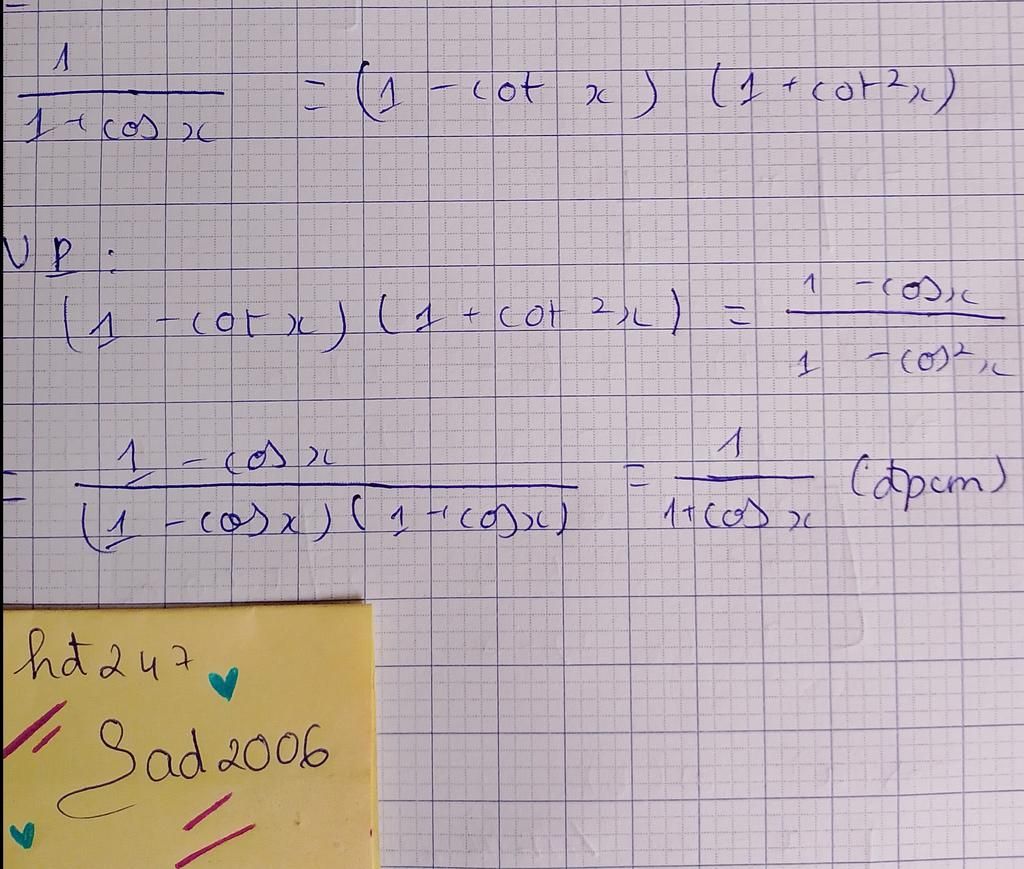 1/(1 + cos x) = (1 - cot x) (1 + cot²x)
VP :
(1 - cot x) (1 + cot²x) = (1 - cosx)/(1 - cos²x)
= (1 - cos x)/((1 - cosx)(1 + cosx)) = 1/(1 + cos x) (đpcm)
hđ247
Sad2006